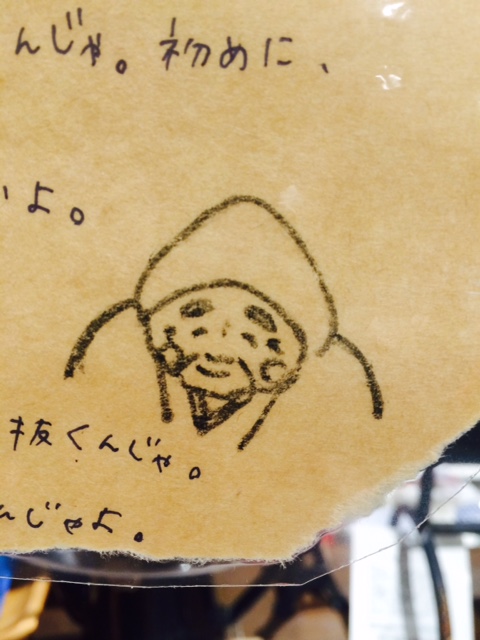 んじゃ。初めに、
いよ。
抜くんじゃ。
んじゃよ。